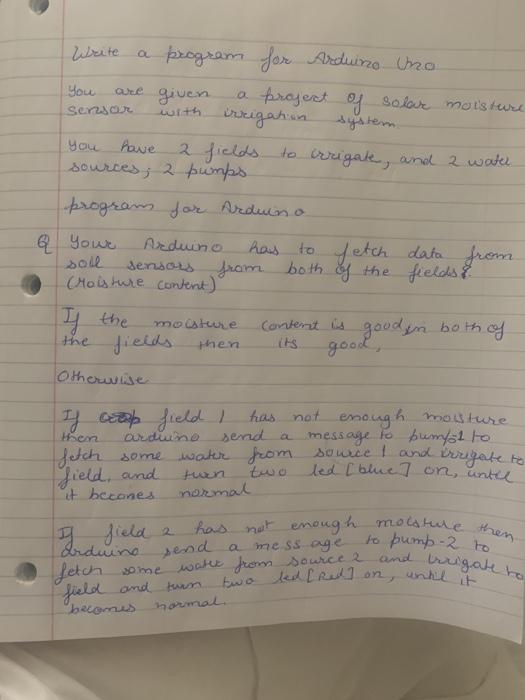 Write a program for Arduino Uno
You are given a project of solar moisture
sensor with irrigation system.
You have 2 fields to irrigate, and 2 water
sources; 2 pumps
program for Arduino
Q Your Arduino has to fetch data from
soil sensors from both of the fields.
(Moisture content)
If the moisture content is good in both of
the fields then its good,
Otherwise
If field 1 has not enough moisture
then arduino send a message to pump1 to
fetch some water from source 1 and irrigate to
field, and turn two led [blue] on, until
it becomes normal
If field 2 has not enough moisture then
Arduino send a message to pump-2 to
fetch some water from source 2 and irrigate to
field and turn two led [Red] on, until it
becomes normal.